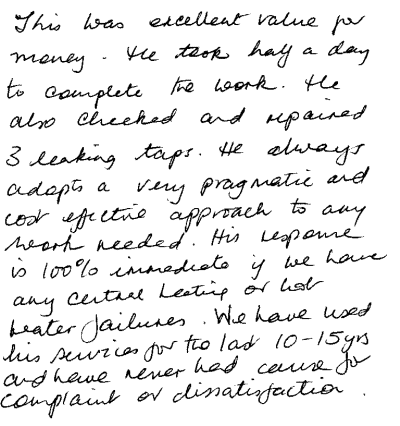 This was excellent value for
money. He took half a day
to complete the work. He
also checked and repaired
3 leaking taps. He always
adopts a very pragmatic and
cost effective approach to any
work needed. His response
is 100% immediate if we have
any central heating or hot
heater failures. We have used
his services for the last 10-15yrs
and have never had cause for
complaint or dissatisfaction.